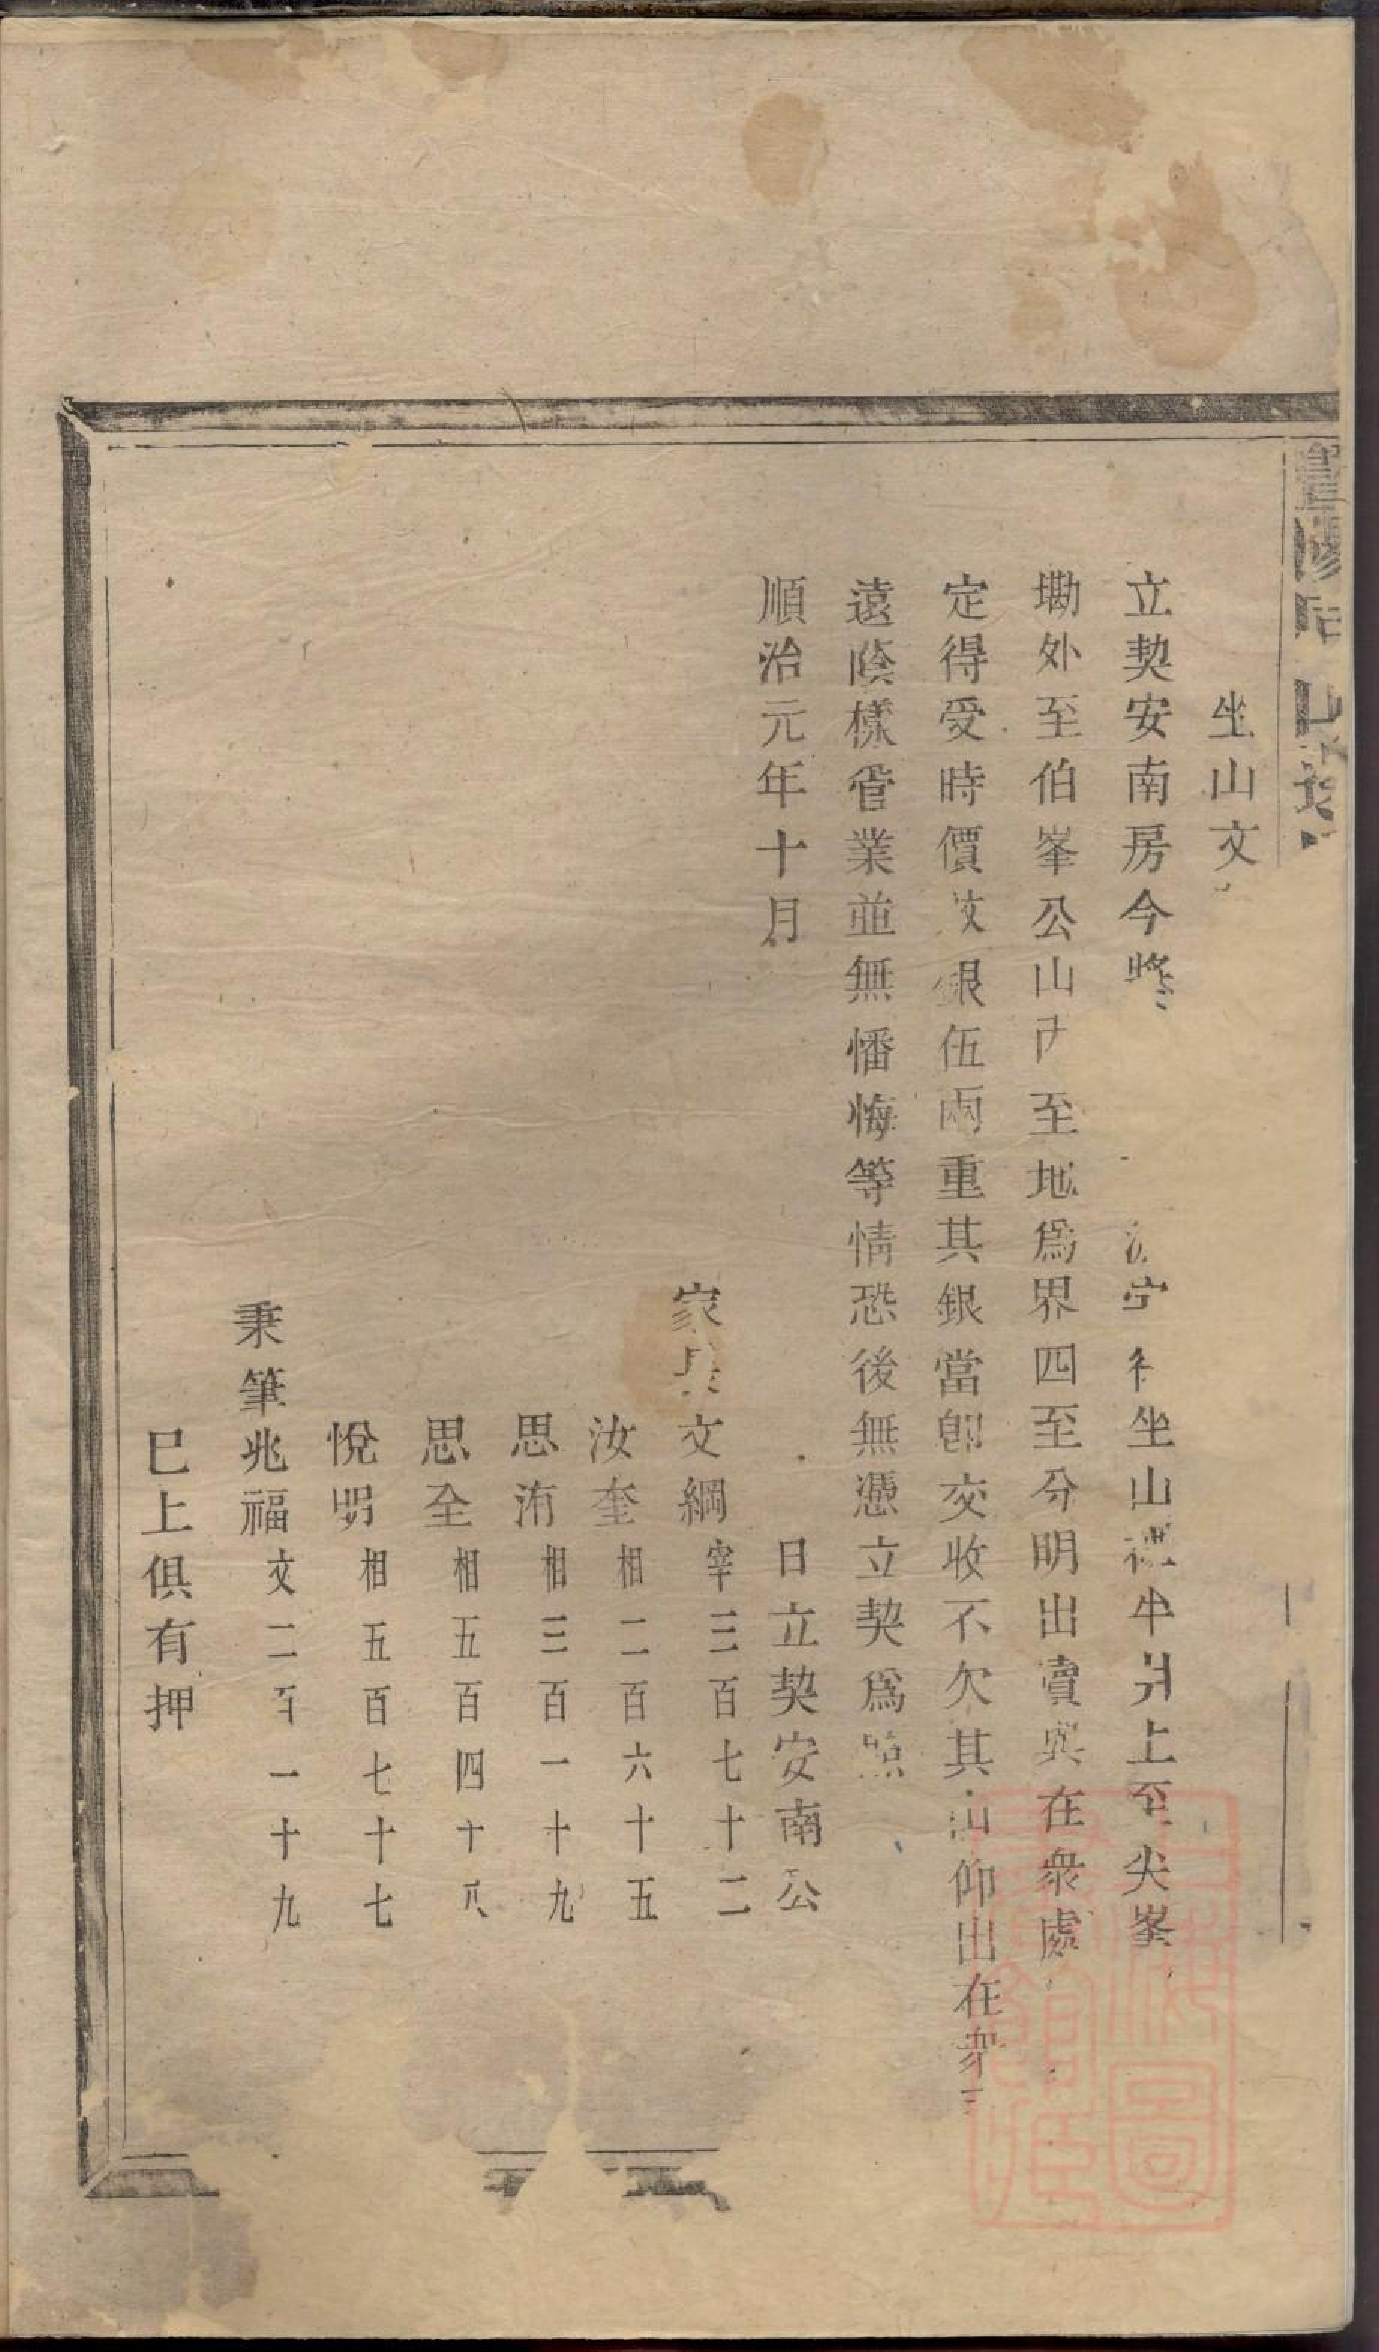 坐山文
立契安南房今將 坐山 半 上至尖峯
墈外至伯峯公山 至地爲界四至分明出賣與在衆處
定得受時價 銀伍兩重其銀當卽交收不欠其山仰出在衆
遠蔭樣管業並無憣悔等情恐後無憑立契爲照
順治元年十月 日立契安南公
家長文綱宰三百七十二
汝奎相二百六十五
思洧相三百一十九
思全相五百四十八
悅明相五百七十七
秉筆兆福文二百一十九
巳上俱有押
上海圖書館藏